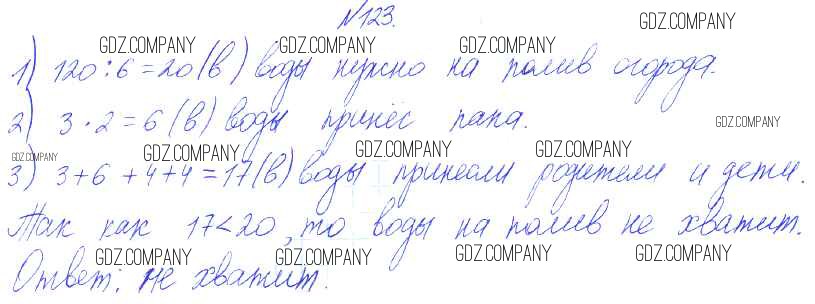 №123.
GDZ.COMPANY
GDZ.COMPANY GDZ.COMPANY GDZ.COMPANY GDZ.COMPANY
1) 120:6=20(в) воды нужно на полив огорода.
2) 3·2=6(в) воды принёс папа.
GDZ.COMPANY
GDZ.COMPANY GDZ.COMPANY GDZ.COMPANY GDZ.COMPANY
3) 3+6+4+4=17(в) воды принесли родители и дети.
Так как 17<20, то воды на полив не хватит.
GDZ.COMPANY GDZ.COMPANY GDZ.COMPANY GDZ.COMPANY
Ответ: не хватит.